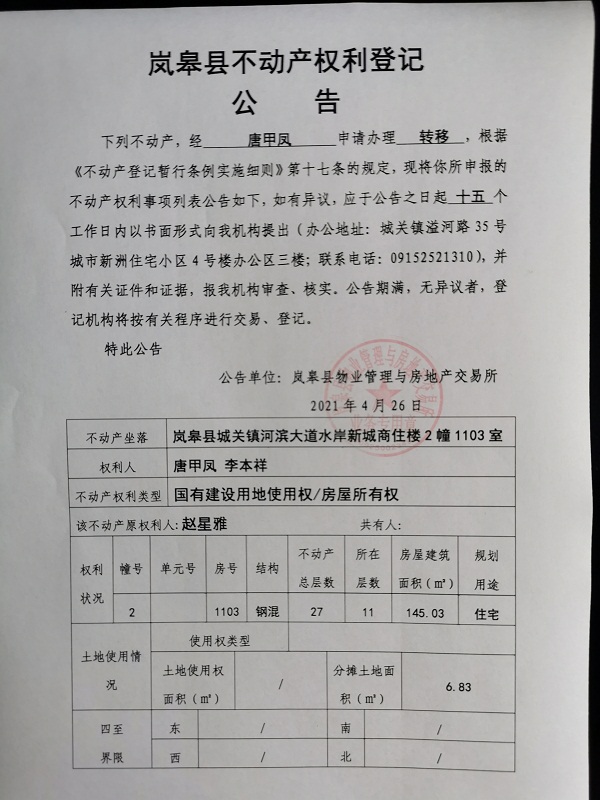 岚皋县不动产权利登记
公 告
下列不动产，经 唐甲凤 申请办理 转移 ，根据
《不动产登记暂行条例实施细则》第十七条的规定，现将你所申报的
不动产权利事项列表公告如下，如有异议，应于公告之日起 十五 个
工作日内以书面形式向我机构提出（办公地址：城关镇溢河路 35 号
城市新洲住宅小区 4 号楼办公区三楼；联系电话：09152521310），并
附有关证件和证据，报我机构审查、核实。公告期满，无异议者，登
记机构将按有关程序进行交易、登记。
特此公告
公告单位：岚皋县物业管理与房地产交易所
2021 年 4 月 26 日
不动产坐落 岚皋县城关镇河滨大道水岸新城商住楼 2 幢 1103 室
权利人 唐甲凤 李本祥
不动产权利类型 国有建设用地使用权/房屋所有权
该不动产原权利人: 赵星雅 共有人：
权利状况 幢号 单元号 房号 结构 不动产总层数 所在层数 房屋建筑面积（㎡） 规划用途
2 1103 钢混 27 11 145.03 住宅
土地使用情况 使用权类型
土地使用权面积（㎡） / 分摊土地面积（㎡） 6.83
四至界限 东 / 南 /
西 / 北 /